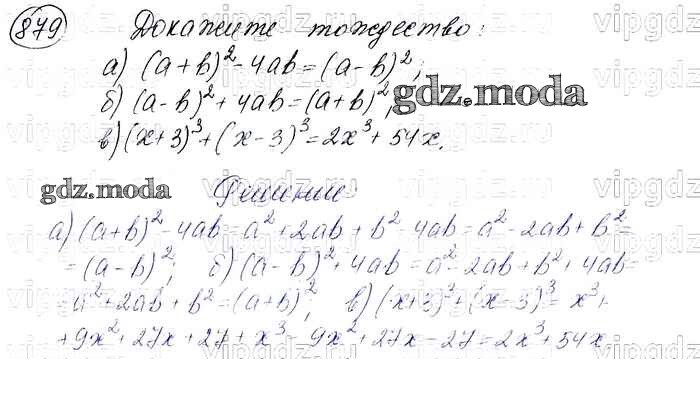 879 Докажите тождество:
а) (a+b)²-4ab=(a-b)²;
б) (a-b)²+4ab=(a+b)²;
gdz.moda
в) (x+3)³+(x-3)³=2x³+54x.
gdz.moda Решение:
а) (a+b)²-4ab=a²+2ab+b²-4ab=a²-2ab+b²=
=(a-b)²; б) (a-b)²+4ab=a²-2ab+b²+4ab=
=a²+2ab+b²=(a+b)², в) (x+3)³+(x-3)³=x³+
+9x²+27x+27+x³-9x²+27x-27=2x³+54x.